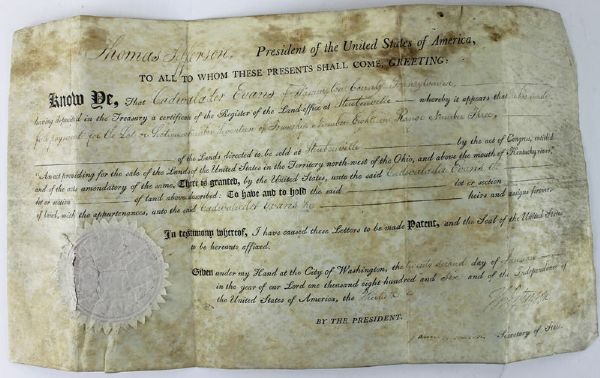 Thomas Jefferson, President of the United States of America,
TO ALL TO WHOM THESE PRESENTS SHALL COME, GREETING:
Know Ye, That Cadwalader Evans of Washington County Pennsylvania
having deposited in the Treasury a certificate of the Register of the Land-office at Steubenville whereby it appears that he has made
full payment for the Lot or Section number Seventeen of Township Number Eight in Range Number Three,
of the Lands directed to be sold at Steubenville by the act of Congress, entitled
"An act providing for the sale of the Lands of the United States in the Territory north-west of the Ohio, and above the mouth of Kentucky river,"
and of the acts amendatory of the same, There is granted, by the United States, unto the said Cadwalader Evans
lot or section of land above described: To have and to hold the said lot or section
of land, with the appurtenances, unto the said Cadwalader Evans his heirs and assigns forever.
In testimony whereof, I have caused these Letters to be made Patent, and the Seal of the United States
to be hereunto affixed.
Given under my Hand at the City of Washington, the second day of
in the year of our Lord one thousand eight hundred and Six and of the Independence of
the United States of America, the
BY THE PRESIDENT.
Secretary of State